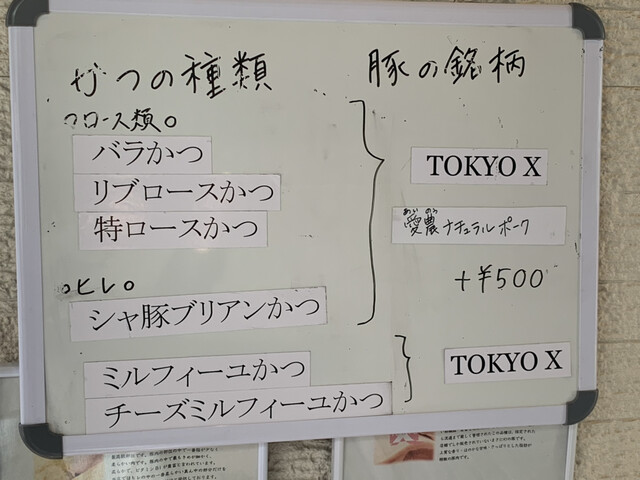 かつの種類
豚の銘柄
ロース類。
バラかつ
リブロースかつ
特ロースかつ
ヒレ。
シャ豚ブリアンかつ
TOKYO X
あい のう
愛農ナチュラルポーク
+¥500
ミルフィーユかつ
チーズミルフィーユかつ
TOKYO X